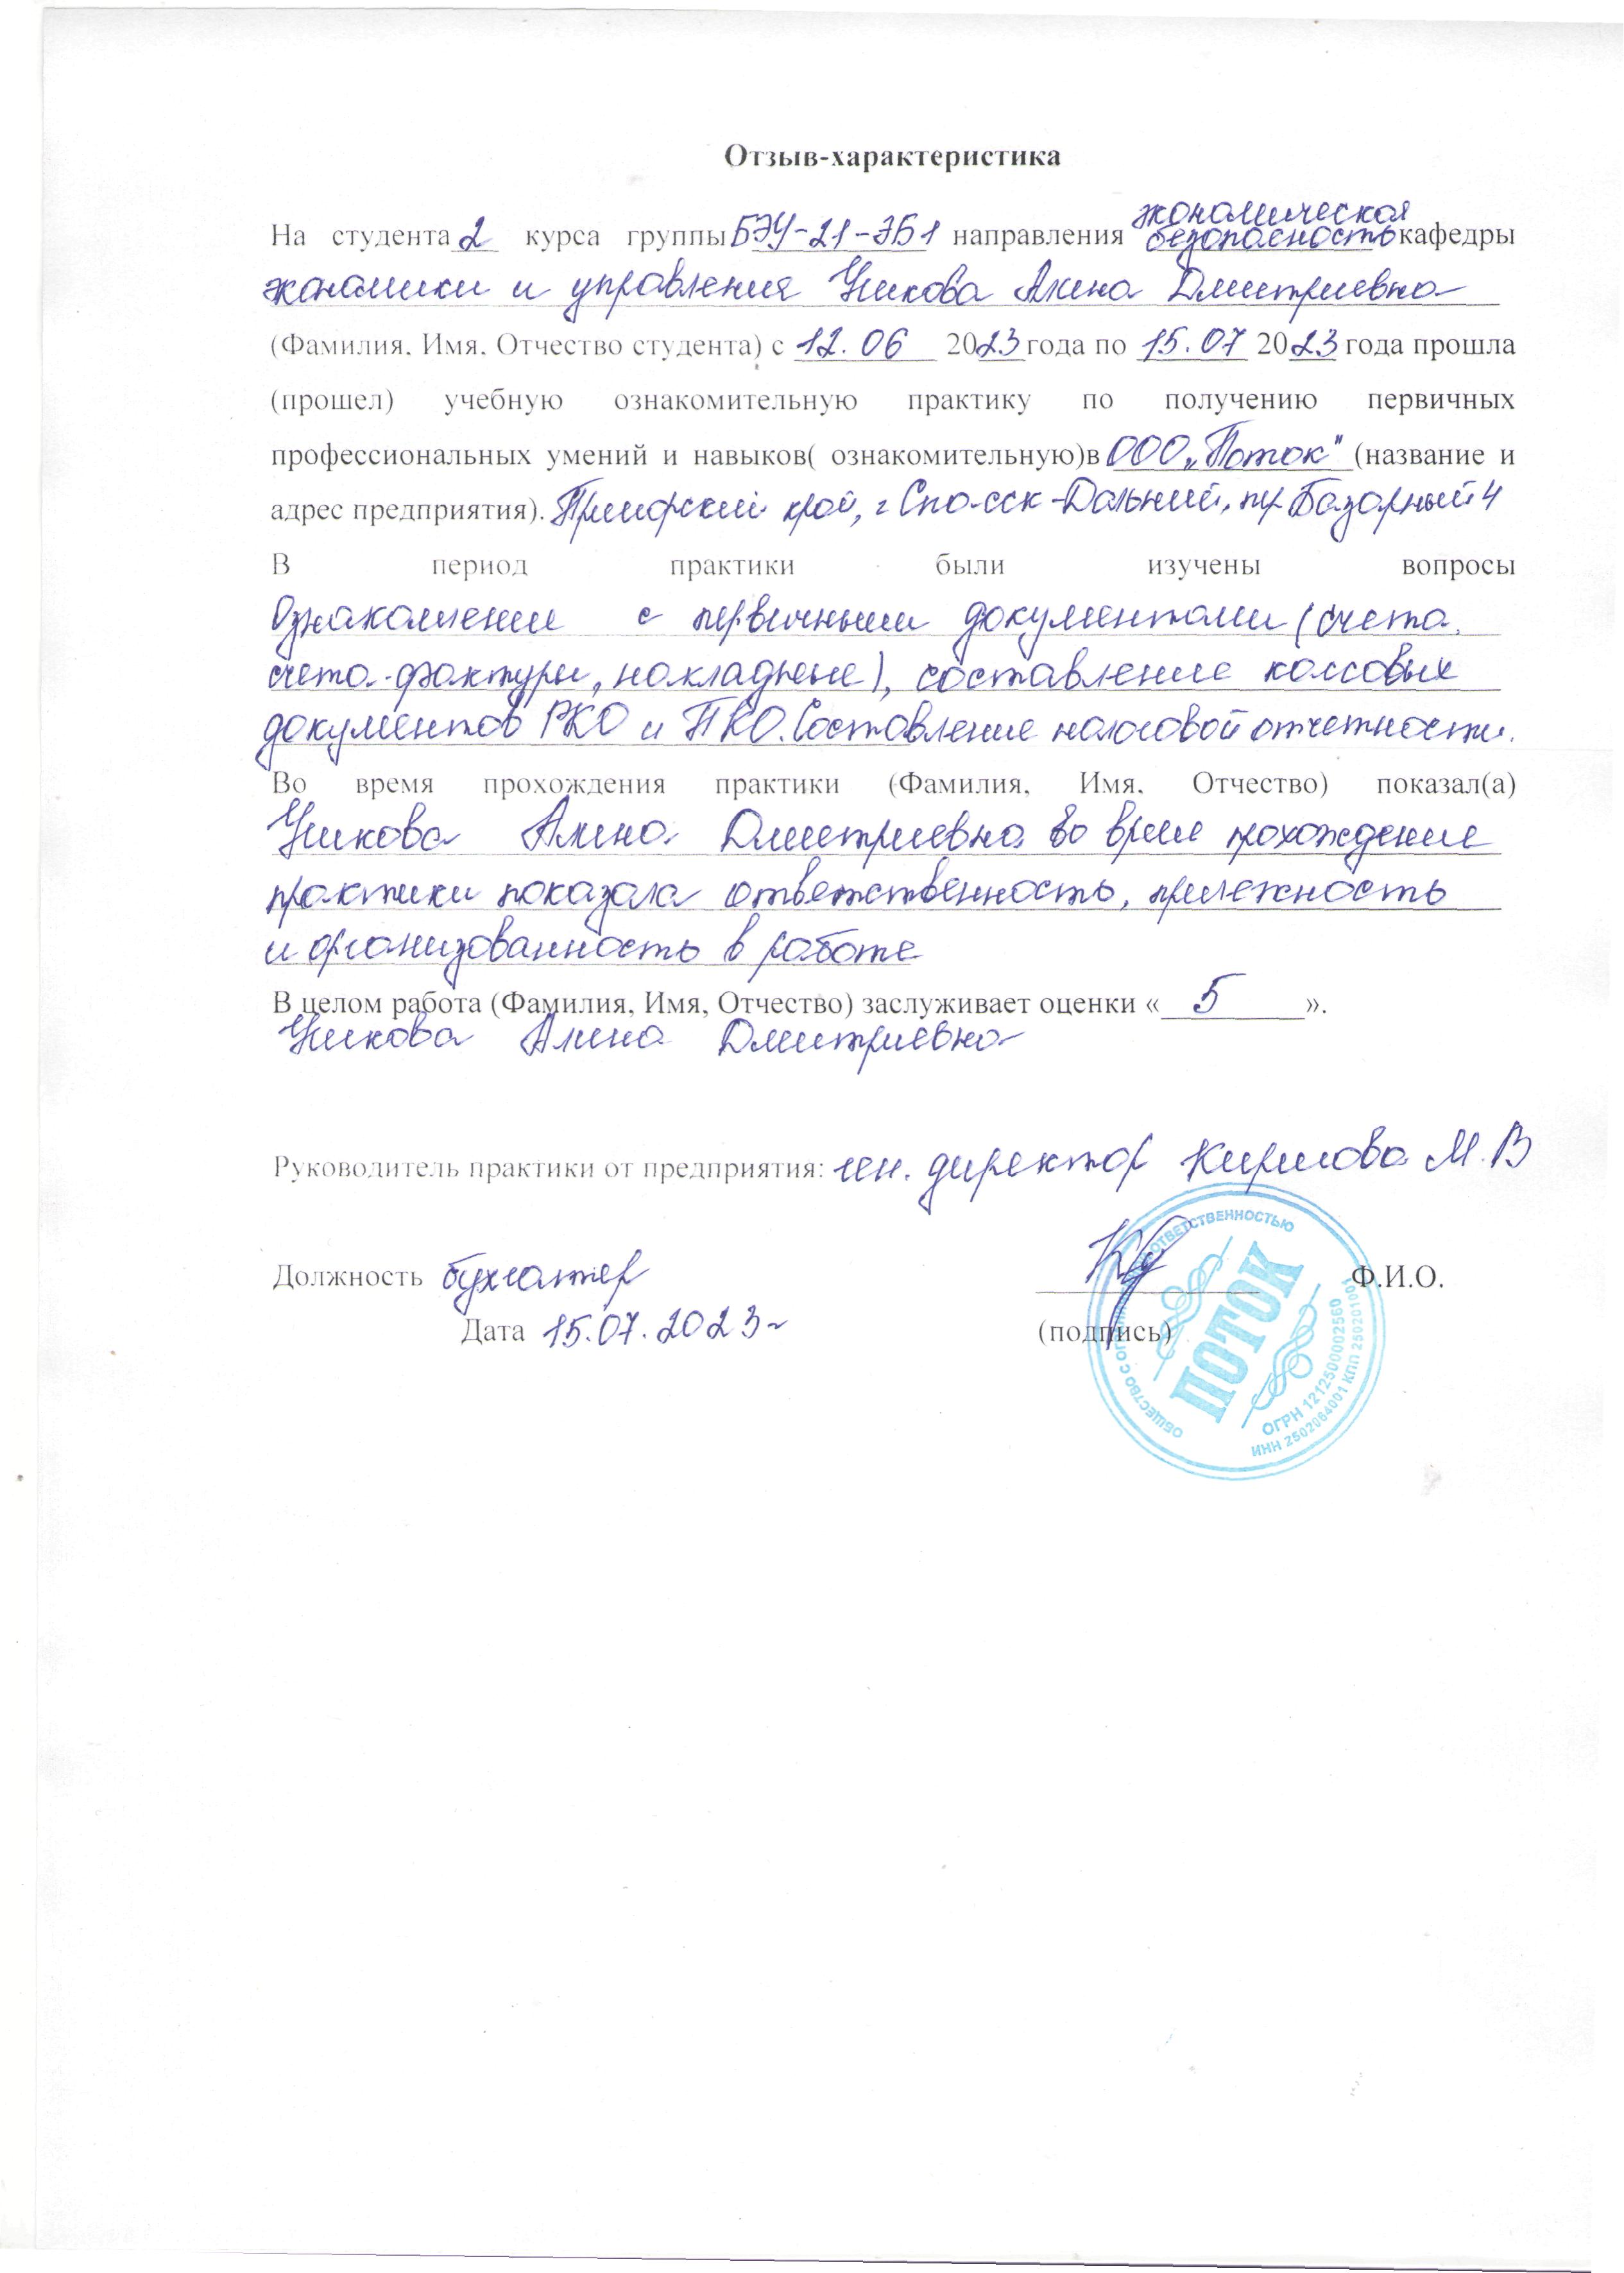 Отзыв-характеристика
На студента 2 курса группы БЭУ-21-ЭБ1 направления экономическая безопасность кафедры
экономики и управления Ушкова Алина Дмитриевна
(Фамилия, Имя, Отчество студента) с 12.06 2023 года по 15.07 2023 года прошла
(прошел) учебную ознакомительную практику по получению первичных
профессиональных умений и навыков( ознакомительную)в ООО „Поток" (название и
адрес предприятия). Приморский край, г Спасск-Дальний, пер Базарный 4
В период практики были изучены вопросы
Ознакомление с первичными документами (счета,
счета-фактуры, накладные), составление кассовых
документов РКО и ПКО. Составление налоговой отчетности.
Во время прохождения практики (Фамилия, Имя, Отчество) показал(а)
Ушкова Алина Дмитриевна во время прохождение
практики показала ответственность, прилежность
и организованность в работе
В целом работа (Фамилия, Имя, Отчество) заслуживает оценки « 5 ».
Ушкова Алина Дмитриевна
Руководитель практики от предприятия: ген. директор М.В
ОБЩЕСТВО С ОГРАНИЧЕННОЙ ОТВЕТСТВЕННОСТЬЮ
Должность бухгалтер Ф.И.О.
Дата 15.07.2023г (подпись)
ПОТОК
ОГРН 1212500002560
ИНН 2502064001 КПП 250201001